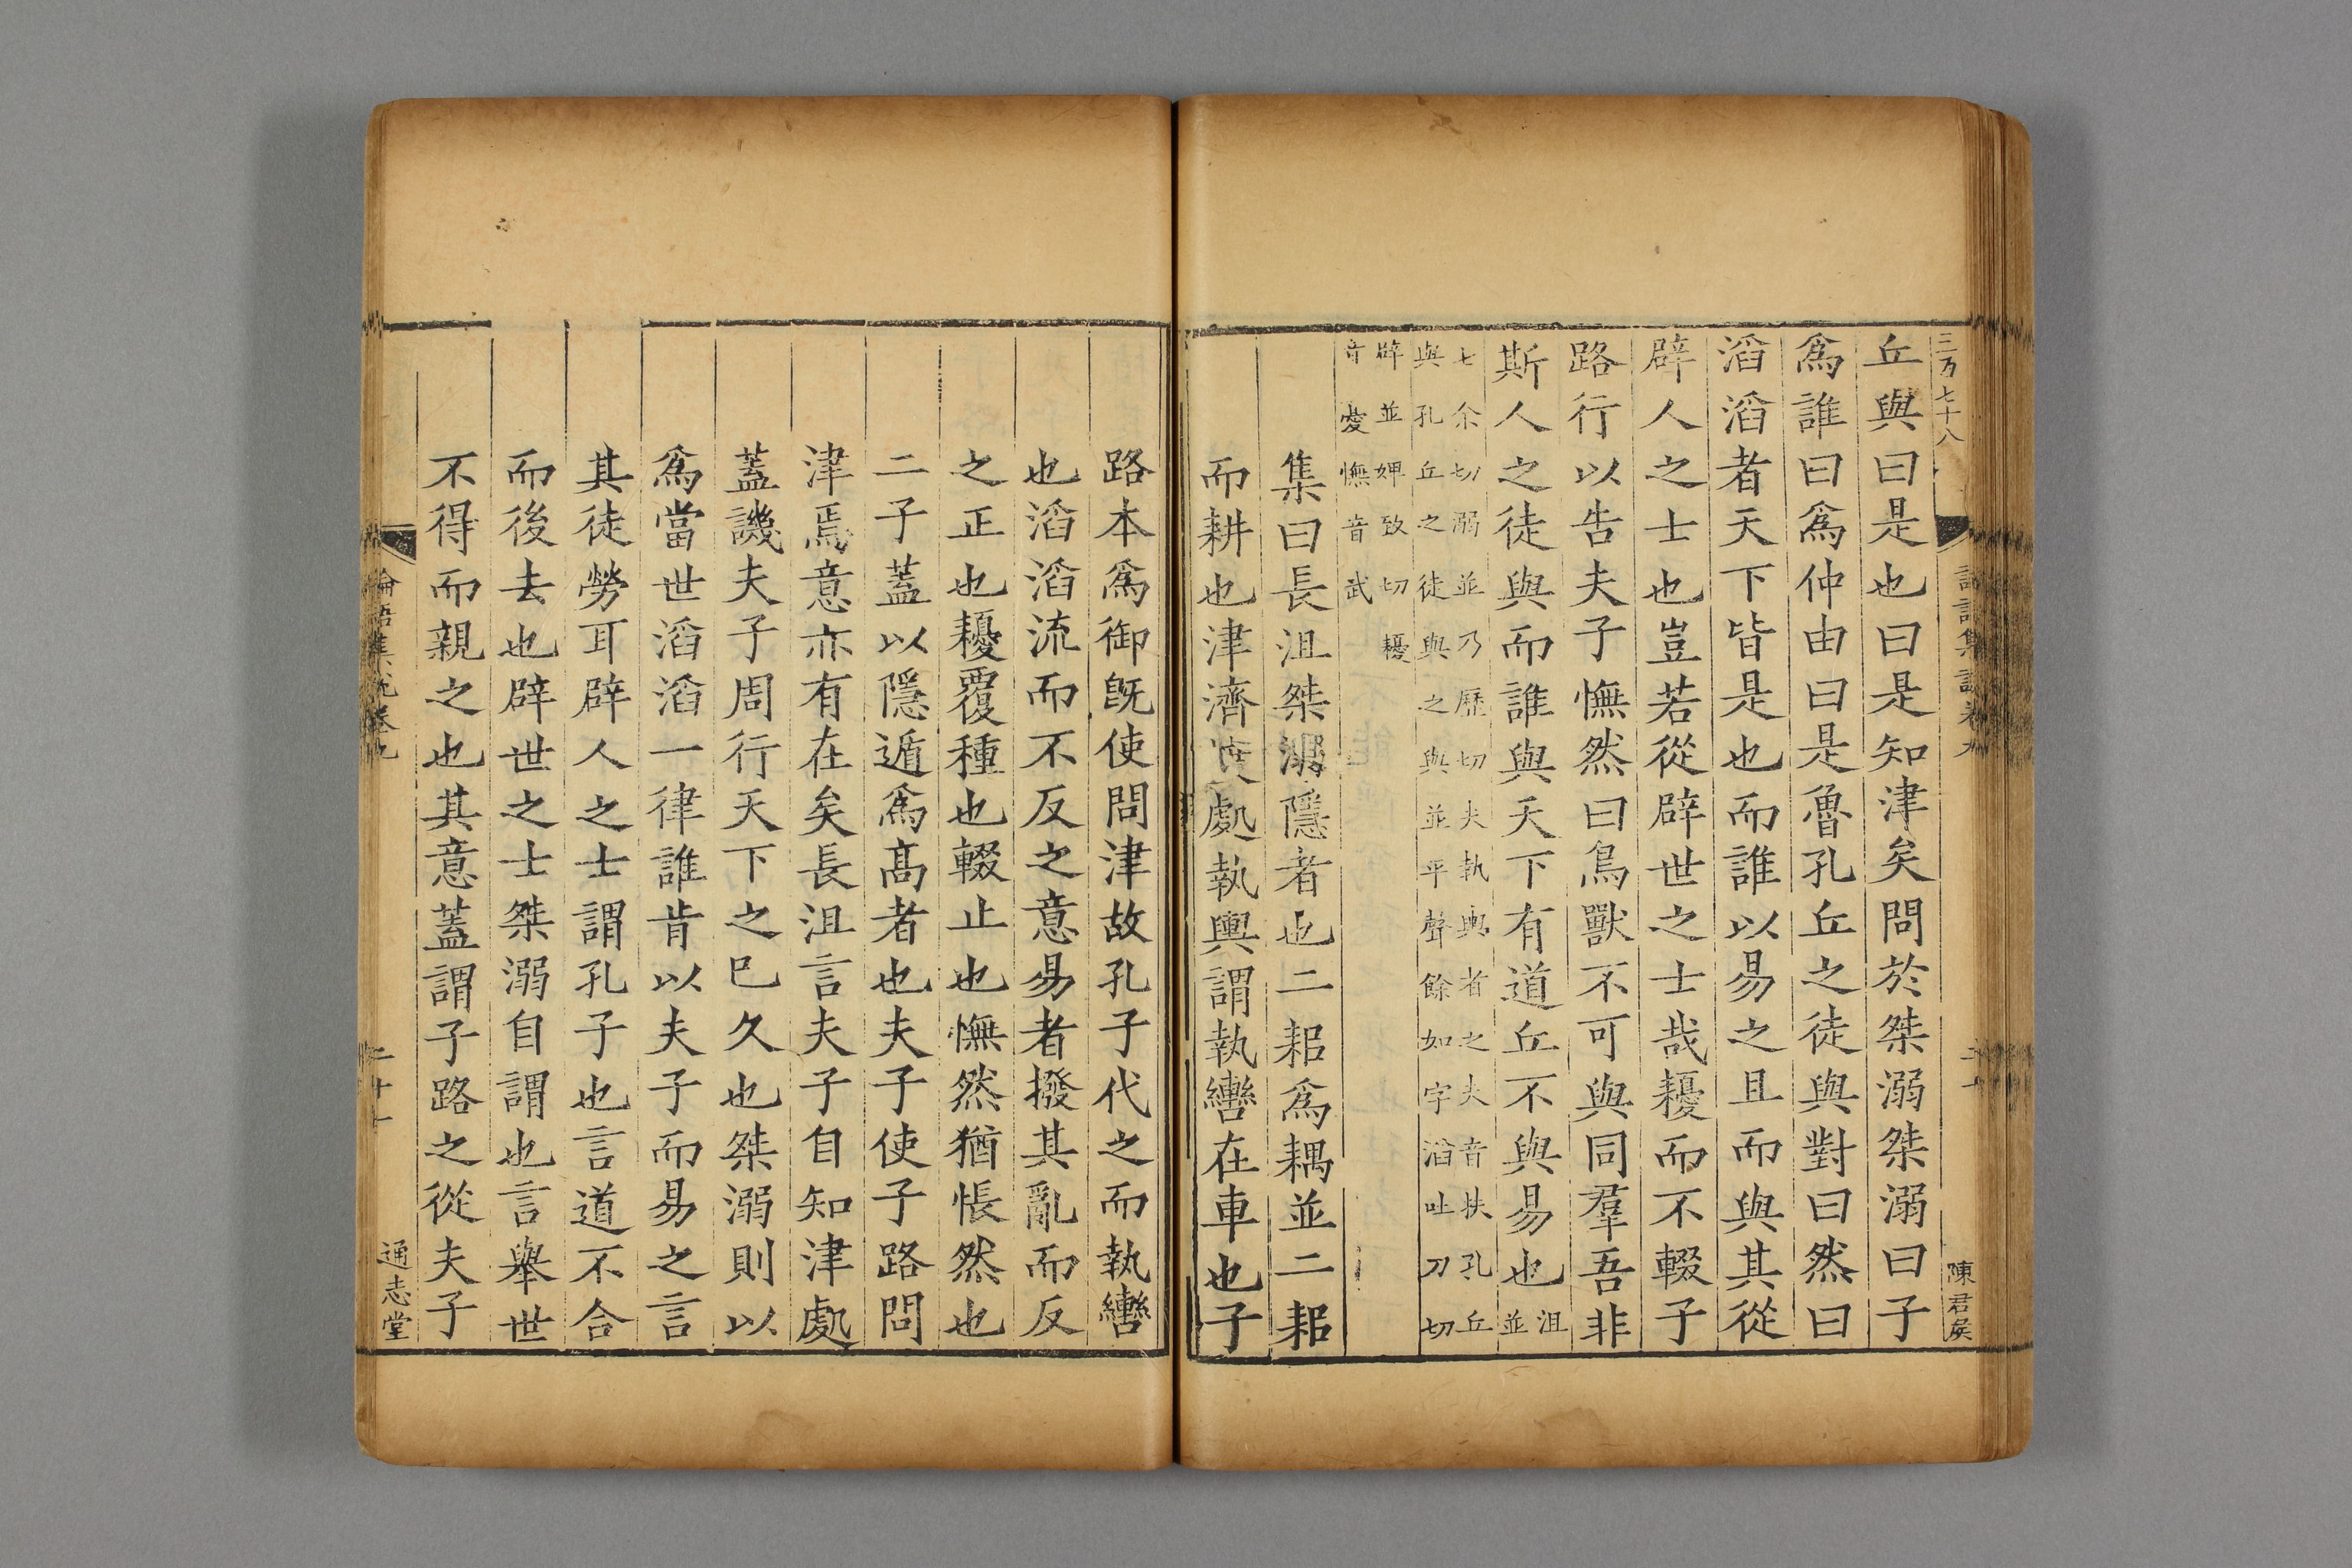 三万七十八
陳君矦
丘與曰是也曰是知津矣問於桀溺桀溺曰子
爲誰曰爲仲由曰是魯孔丘之徒與對曰然曰
滔滔者天下皆是也而誰以易之且而與其從
辟人之士也豈若從辟世之士哉耰而不輟子
路行以告夫子憮然曰鳥獸不可與同羣吾非
斯人之徒與而誰與天下有道丘不與易也沮並
七余切溺並乃歷切夫執輿者之夫音扶孔丘
與孔丘之徒與之與並平聲餘如字滔吐刀切
辟並婢致切耰
音憂憮音武
集曰長沮桀溺隱者也二耜爲耦並二耜
而耕也津濟渡處執輿謂執轡在車也子
路本爲御旣使問津故孔子代之而執轡
也滔滔流而不反之意易者撥其亂而反
之正也耰覆種也輟止也憮然猶悵然也
二子蓋以隱遁爲髙者也夫子使子路問
津焉意亦有在矣長沮言夫子自知津處
蓋譏夫子周行天下之已久也桀溺則以
爲當世滔滔一律誰肯以夫子而易之言
其徒勞耳辟人之士謂孔子也言道不合
而後去也辟世之士桀溺自謂也言舉世
不得而親之也其意蓋謂子路之從夫子
論語集說卷九
二十一
通志堂